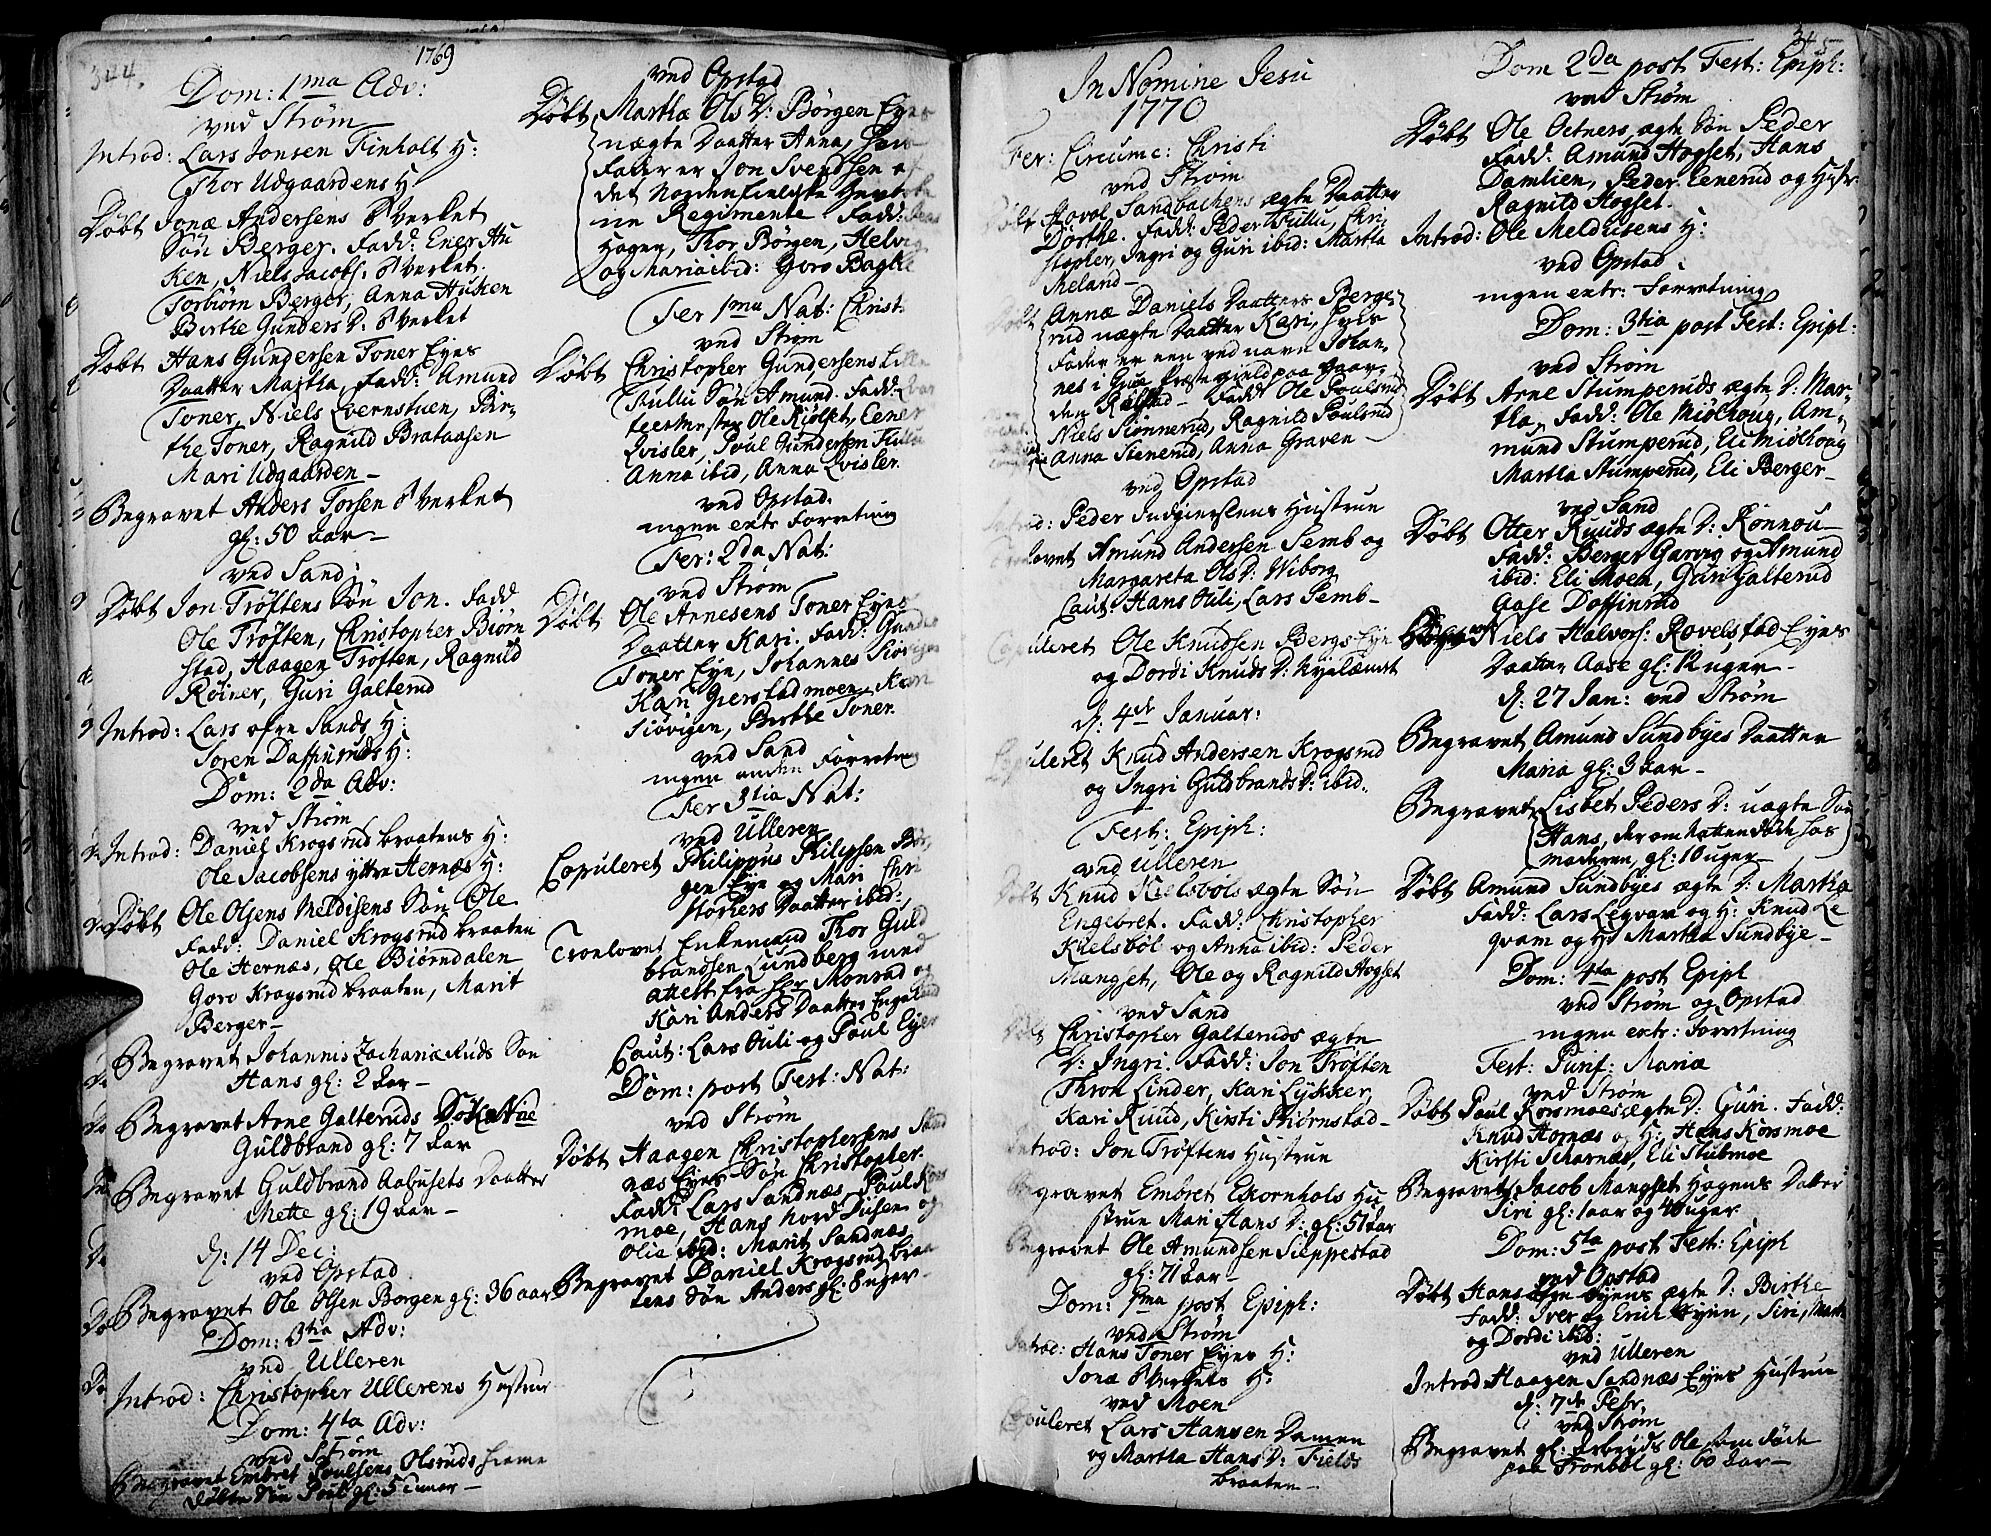 344.
1769
Dom: 1ma Adv:
ved Strøm
Introd: Lars Jonsen Finholt H:
Thor Udgaardens H
Døbt Jonæ Andersens Verket
Søn Berger. Fadd: Ener Au
ken, Niels Jacobs. Verket.
Torbiørn Berger, Anna Auken
Birthe Gunders D: Verket
Døbt Hans Gundersen Toner Eyes
Daatter Martha, Fadd: Amund
Toner, Niels Qvernstuen, Bir-
the Toner, Ragnild Brataasen
Mari Udgaarden
Begravet Anders Torsen Verket
gl: 50 aar
ved Sand
Døbt Jon Trøftens Søn Jon. Fadd
Ole Trøften, Christopher Biørn
stad, Haagen Trøften, Ragnild
Røiner, Guri Galterud
Introd: Lars øfre Sands H:
Søren Daffinruds H:
Dom: 2da Adv:
ved Strøm
Introd: Daniel Krogsrud braatens H:
Ole Jacobsens yttre Hernæs H:
Døbt Ole Olsens Meldisens Søn Ole
Fadd: Daniel Krogsrud braaten
Ole Hernæs, Ole Biørndalen
Goro Krogsrud braaten, Marit
Berger
Begravet Johannis Zachariæ Ruds Søn
Hans gl: 2 aar
Begravet Arne Galteruds
Guldbrand gl: 7 aar
Begravet Guldbrand Aabusets Daatter
Mette gl: 19 aar
d: 14 Dec:
ved Opstad
Begravet Ole Olsen Borgen gl: 36 aar
Dom: 3tia Adv:
ved Ulleren
Introd: Christopher Ullerens Hustrue
Dom: 4ta Adv:
ved Strøm
Begravet Embret Poulsens Olsruds hieme
døbte Søn Poul gl: 5
ved Opstad
Døbt Martha Ols D: Børgen Eyes
uægte Daatter Anna,
Fader er Jon Svendsen af
det Nordenfieldske
ne Regimente Fadd:
Hagen, Thor Børgen, Helvig
og Maria ibid: Goro
Fer 1ma Nat: Christ:
ved Strøm
Døbt Christopher Gundersens Lille
Fullu Søn Amund. Fadd:
teermester Ole Kiølset, Eener
Qvisler, Poul Gundersen Fullu
Anna ibid, Anna Qvisler.
ved Opstad.
ingen extr Forretning
Fer: 2da Nat:
ved Strøm
Døbt Ole Arnesens Toner Eyes
Daatter Kari. Fadd: Gunder
Toner Eye, Johannes Siøvigen
Kari Gierstadmoen, Kari
Siøvigen, Berthe Toner.
ved Sand
ingen anden Forretning
Fer 3tia Nat:
ved Ulleren
Copuleret Philippus Philipsen Bør
gen Eye og Mari Chri
stophers Daatter ibid:
Troelovet Enkemand Thor Guld
brandsen Lundberg med
attest fra Hr Monrad og
Kari Anders Daatter
Caut: Lars Ouli og Poul Eyer
Dom: post Fest: Nat:
ved Strøm
Døbt Haagen Christophersens Sand
næs Eyes Søn Christopher.
Fadd Lars Sandnæs, Poul Kors
moe, Hans Nord Disen og
Olia ibid: Marit Sandnæs
Begravet Daniel Krogsrud braa
tens Søn Anders gl: 8 uger
345
In Nomine Jesu
1770
Fer: Circumc: Christi
ved Strøm
Døbt Hovol Sandbachens ægte Daatter
Dorthe. Fadd: Peder Fullu, Chri
stopher, Ingri og Guri ibid: Martha
Meland
Døbt Annæ Daniels Daatters Berge-
rud uægte Daatter Kari, hvis
Fader er een ved navn Johan-
nes i Grue Præstegield paa gaar-
den Fadd: Ole Poulsrud
Niels Siønnerud, Ragnild Poulsrud
Anna Stenerud, Anna Graven
ved Opstad
Introd: Peder Hustrue
Troelovet Amund Andersen Semb og
Margareta Ols D: Wiborg
Caut: Hans Ouli, Lars Semb
Copuleret Ole Knudsen Bergs Eye
og Dordi Knuds D:
d: 4de Januar:
Copuleret Knud Andersen Krogsrud
og Ingri Guldbrands D: ibid.
Fest: Epiph:
ved Ulleren
Døbt Knud Kielsbøls ægte Søn
Engebret. Fadd: Christopher
Kielsbøl og Anna ibid: Peder
Mangset, Ole og Ragnild Hogset
ved Sand
Døbt Christopher Galteruds ægte
D: Ingri. Fadd: Jon Trøften
Thron Linder, Kari Lykker,
Kari Ruud, Kirsti Biørnstad
Introd: Jon Trøftens Hustrue
Begravet Embret Ekornhols Hu
strue Mari Hans D: gl: 57 aar
Begravet Ole Amundsen Sieppestad
gl: 71 aar
Dom: 1ma post Epiph:
ved Strøm
Introd: Hans Toner Eyes H:
Jonæ Verkets H:
ved Moen
Copuleret Lars Hansen Damen
og Martha Hans D: Fields
braaten
Dom 2da post Fest: Epiph:
ved Strøm
Døbt Ole Oetners ægte Søn Peder
Fadd: Amund Hogset, Hans
Damlien, Peder Eenerud og Hustr:
Ragnild Hogset.
Introd: Ole Meldisens H:
ved Opstad
ingen extr: Forretning
Dom: 3tia post Fest: Epiph:
ved Strøm
Døbt Arne Stumperuds ægte D: Mar-
tha, Fadd: Ole Miølhoug, Am-
mund Stumperud, Eli Miølhoug
Martha Stumperud, Eli Berger
ved Sand
Døbt Otter Ruuds ægte D: Rønnou
Fadd: Berger Garvig og Amund
ibid: Eli Moen, Guri Galterud
Gose Daffinrud
Niels Halvors: Rovelstad Eyes
Daatter Aase gl: 12 uger
d: 27 Jan: ved Strøm
Begravet Amund Sundbyes Daatter
Maria gl: 3 aar
Begravet Lisbet Peders D: uægte Søn
Hans, der om natten døde hos
moderen, gl: 10 uger
Døbt Amund Sundbyes ægte D: Martha
Fadd: Lars Leqvam og H: Knud Le
qvam og H: Martha Sundbye
Dom: 4ta post Epiph
ved Strøm og Opstad
ingen extr: Forretning
Fest: Purif: Mariæ
ved Strøm
Døbt Paul Korsmoes ægte D: Guri. Fadd:
Knud Hornæs og H: Hans Korsmoe
Kirsti Schornæs, Eli Stubmoe
Begravet Jacob Mangset Hagens Datter
Siri gl: 1 aar og uger
Dom: 5ta post Fest: Epiph
ved Opstad
Døbt Hans Eyens ægte D: Birthe
Fadd: Iver og Erich Eyen, Siri, Marthe
og Dordi ibid:
ved Ulleren
Introd Haagen Sandnæs Eyes Hustrue
d: 7de Febr.
ved Strøm
Begravet gl: Ole som døde
paa Tronbøl gl: 60 aar